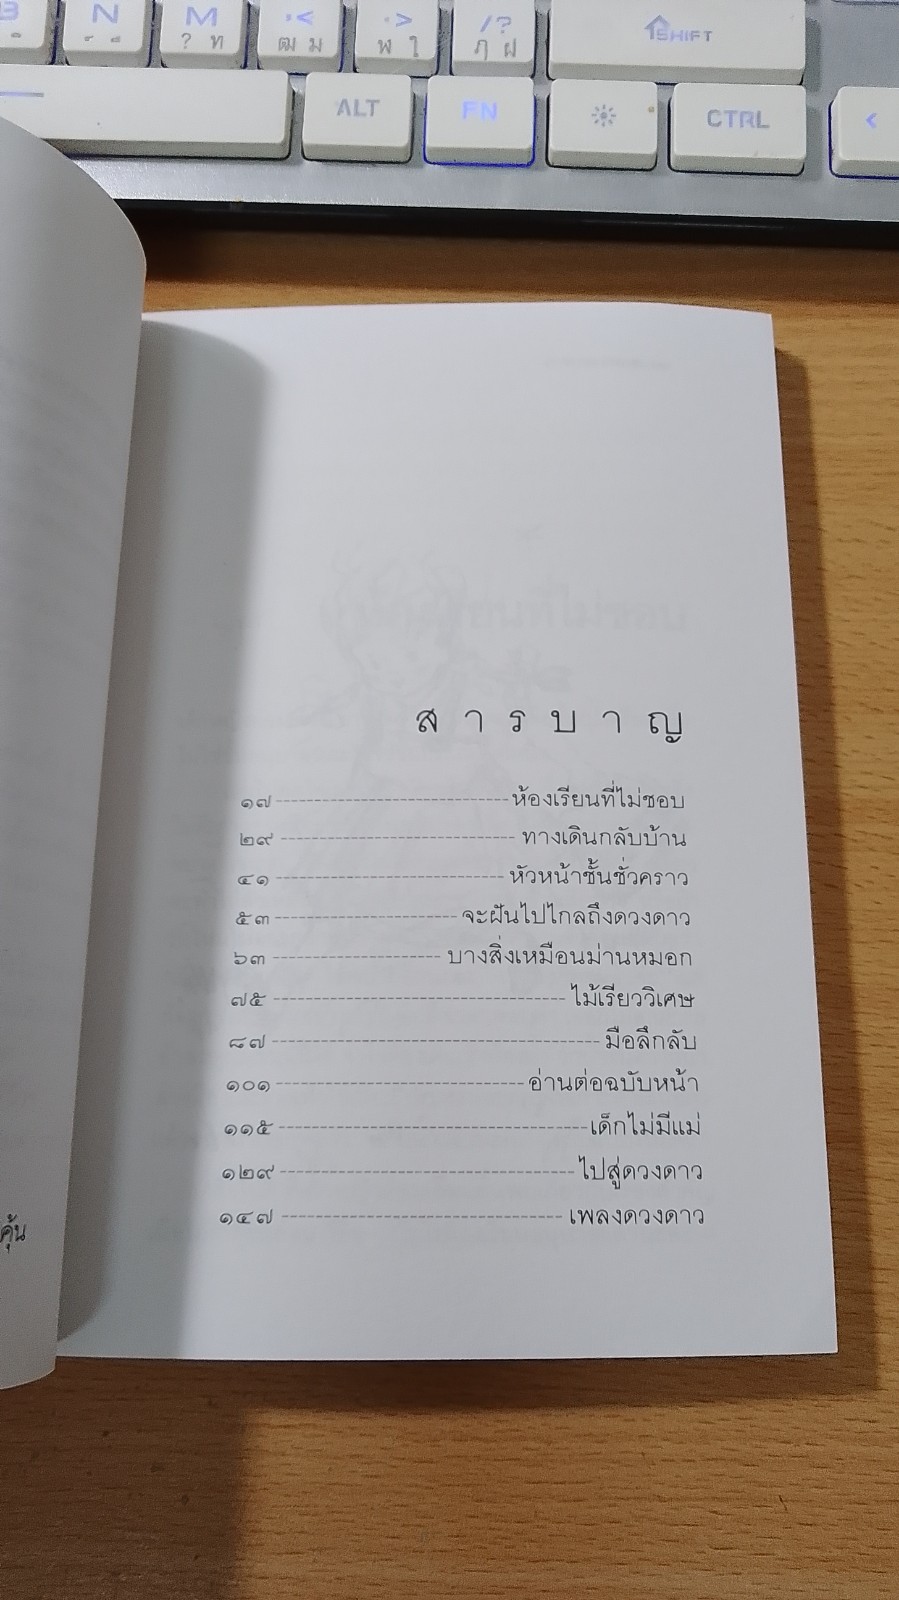 B
N
M
? ท
, <
ฒ ม
. >
ฬ ใ
/ ?
ฦ ฝ
SHIFT
ALT
FN
CTRL
<
สารบาญ
๑๗ ห้องเรียนที่ไม่ชอบ
๒๙ ทางเดินกลับบ้าน
๔๑ หัวหน้าชั้นชั่วคราว
๕๓ จะฝันไปไกลถึงดวงดาว
๖๓ บางสิ่งเหมือนม่านหมอก
๗๕ ไม้เรียววิเศษ
๘๗ มือลึกลับ
๑๐๑ อ่านต่อฉบับหน้า
๑๑๕ เด็กไม่มีแม่
๑๒๙ ไปสู่ดวงดาว
๑๔๗ เพลงดวงดาว
คุ้น